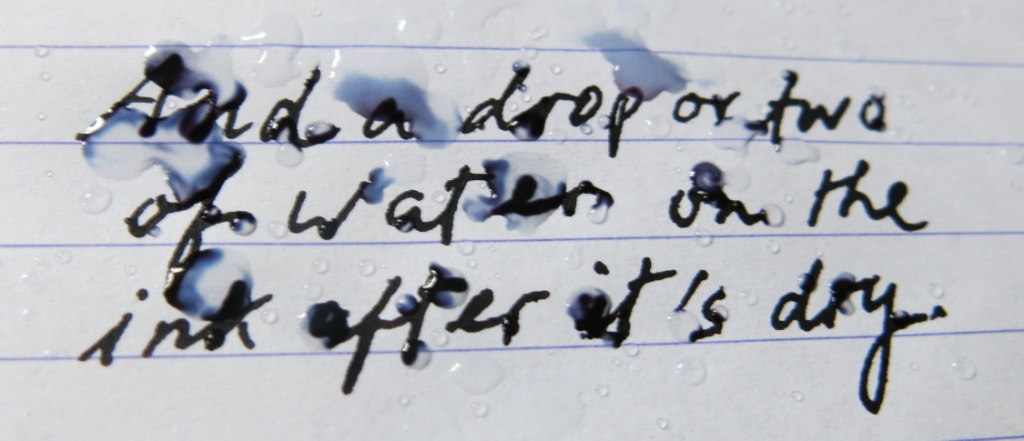 And a drop or two
of water on the
ink after it's dry.